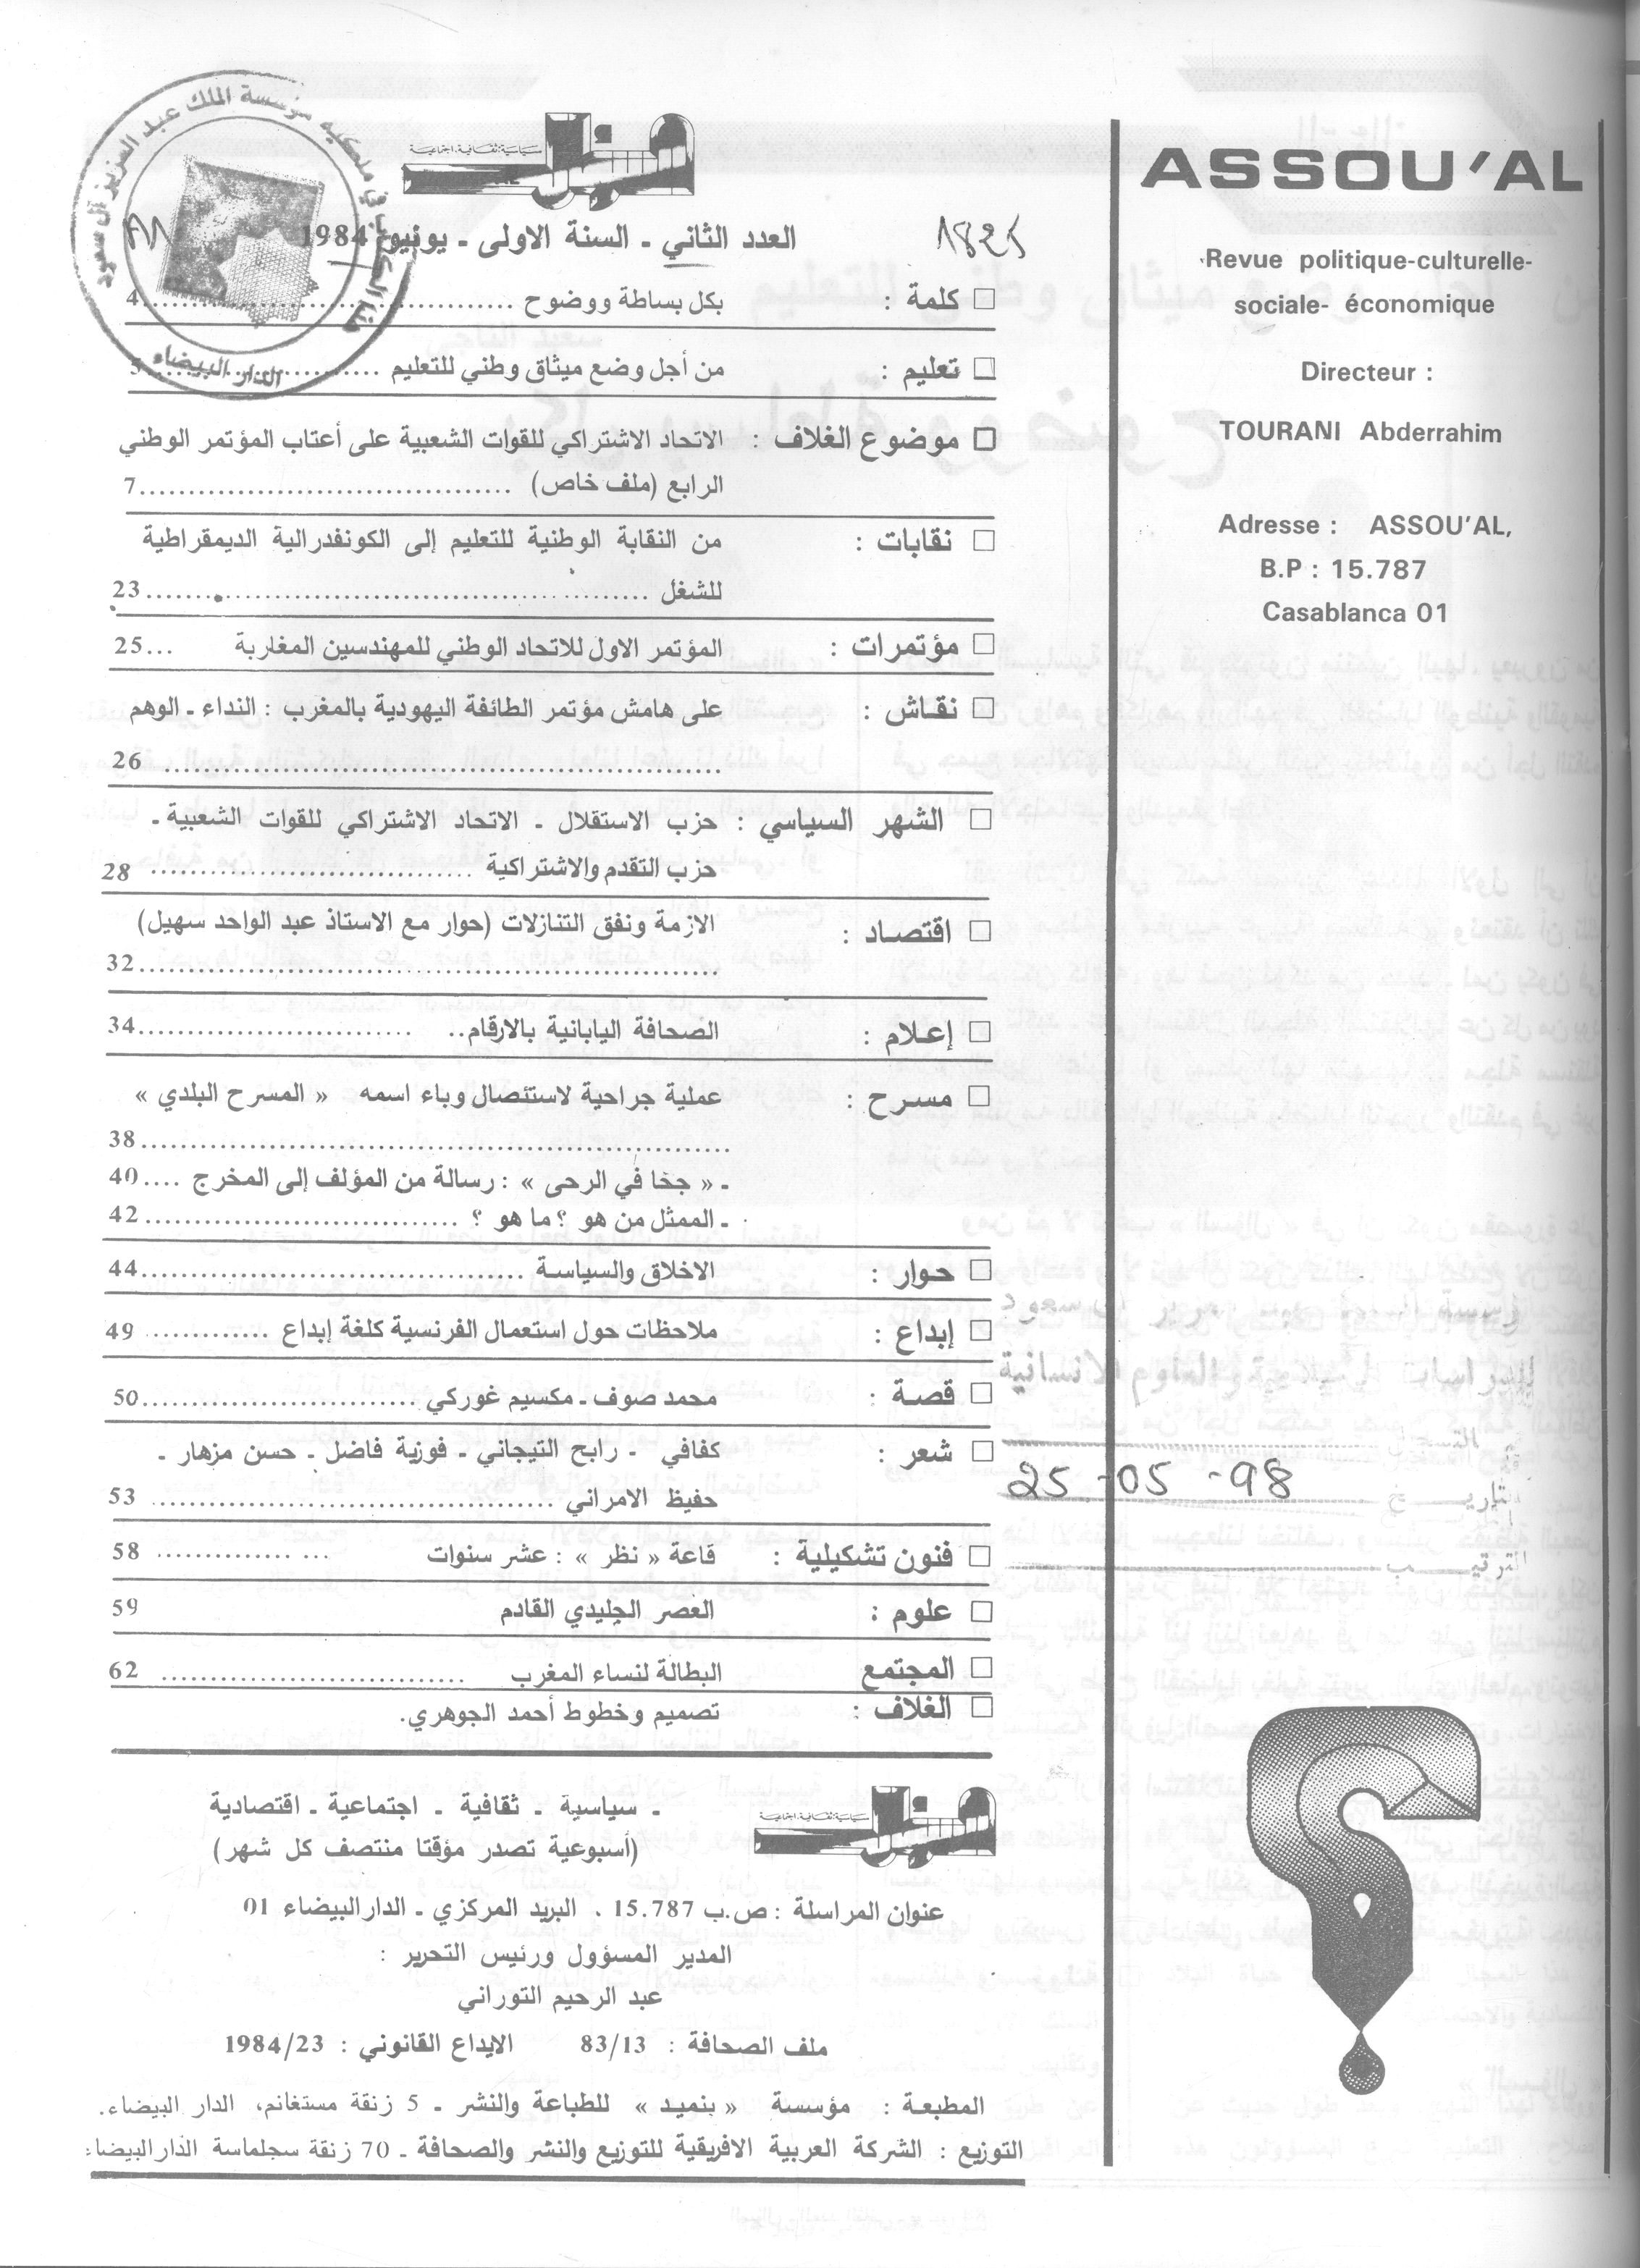 مؤسسة الملك عبد العزيز آل سعود
الدار البيضاء
سياسية، ثقافية، اجتماعية
العدد الثاني ـ السنة الاولى ـ يونيو 1984
□ كلمة : بكل بساطة ووضوح ........ 4
□ تعليم : من أجل وضع ميثاق وطني للتعليم ........ 5
□ موضوع الغلاف : الاتحاد الاشتراكي للقوات الشعبية على أعتاب المؤتمر الوطني
الرابع (ملف خاص) ........ 7
□ نقابات : من النقابة الوطنية للتعليم إلى الكونفدرالية الديمقراطية
للشغل ........ 23
□ مؤتمرات : المؤتمر الاول للاتحاد الوطني للمهندسين المغاربة ... 25
□ نقـاش : على هامش مؤتمر الطائفة اليهودية بالمغرب : النداء ـ الوهم
........ 26
□ الشهر السياسي : حزب الاستقلال ـ الاتحاد الاشتراكي للقوات الشعبية ـ
حزب التقدم والاشتراكية ........ 28
□ اقتصـاد : الازمة ونفق التنازلات (حوار مع الاستاذ عبد الواحد سهيل)
........ 32
□ إعـلام : الصحافة اليابانية بالارقام.. ........ 34
□ مسـرح : عملية جراحية لاستئصال وباء اسمه « المسرح البلدي »
........ 38
ـ « جخا في الرحى » : رسالة من المؤلف إلى المخرج .... 40
ـ الممثل من هو ؟ ما هو ؟ ........ 42
□ حـوار : الاخلاق والسياسة ........ 44
□ إبداع : ملاحظات حول استعمال الفرنسية كلغة إبداع ........ 49
□ قصـة : محمد صوف ـ مكسيم غوركي ........ 50
□ شعر : كفافي ـ رابح التيجاني ـ فوزية فاضل ـ حسن مزهار ـ
حفيظ الامراني ........ 53
□ فنون تشكيلية : قاعة « نظر » : عشر سنوات ........ 58
□ علوم : العصر الجليدي القادم 59
□ المجتمع البطالة لنساء المغرب ........ 62
□ الغلاف : تصميم وخطوط أحمد الجوهري.
سياسية، ثقافية، اجتماعية
ـ سياسية ـ ثقافية ـ اجتماعية ـ اقتصادية
(أسبوعية تصدر مؤقتا منتصف كل شهر)
عنوان المراسلة : ص.ب 15.787 . البريد المركزي ـ الدار البيضاء 01
المدير المسؤول ورئيس التحرير :
عبد الرحيم التوراني
ملف الصحافة : 83/13 الايداع القانوني : 1984/23
المطبعة : مؤسسة « بنميد » للطباعة والنشر ـ 5 زنقة مستغانم، الدار البيضاء.
التوزيع : الشركة العربية الافريقية للتوزيع والنشر والصحافة ـ 70 زنقة سجلماسة الدار البيضاء
ASSOU'AL
Revue politique-culturelle-
sociale- économique
Directeur :
TOURANI Abderrahim
Adresse : ASSOU'AL,
B.P : 15.787
Casablanca 01
25-05-98